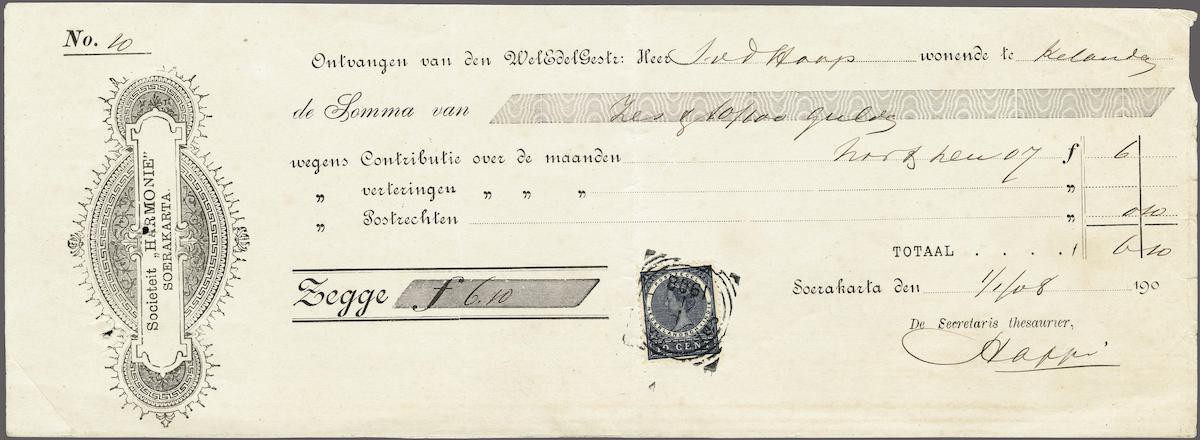 No. 10
Ontvangen van den WelEdelGestr: Heer J v d Hoop wonende te
de Somma van Zes & 10/100 gulden
wegens Contributie over de maanden 07 f 6
„ verteringen „ „ „ „
„ Postrechten „ 0 10
TOTAAL . . . . . f 6 10
Zegge f 6.10
Soerakarta den 1/1/08 190
De Secretaris thesaurier,
Societeit „HARMONIE"
SOERAKARTA.
CENT